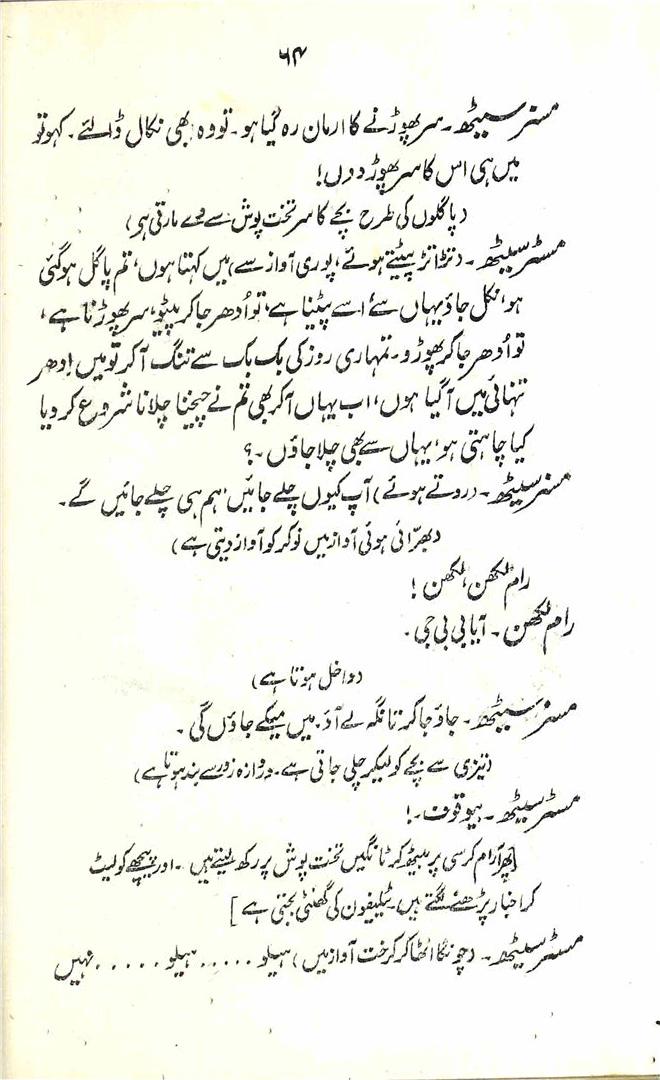 ۶۴
مسز سیٹھ۔ سر پھوڑنے کا ارمان رہ گیا ہو۔ تو وہ بھی نکال ڈالئے۔ کہو تو
میں ہی اس کا سر پھوڑ دوں!
(پاگلوں کی طرح بچے کا سر تخت پوش سے دے مارتی ہی)
مسٹر سیٹھ۔ (تڑاتڑ پیٹتے ہوئے، پوری آواز سے) میں کہتا ہوں، تم پاگل ہو گئی
ہو، نکل جاؤ یہاں سے! اسے پیٹنا ہے، تو اُدھر جا کر پیٹو، سر پھوڑنا ہے،
تو اُدھر جا کر پھوڑو۔ تمہاری روز کی بک بک سے تنگ آکر تو میں اِدھر
تنہائی میں آ گیا ہوں، اب یہاں آکر بھی تم نے چیخنا چلانا شروع کر دیا
کیا چاہتی ہو، یہاں سے بھی چلا جاؤں۔؟
مسز سیٹھ۔ (روتے ہوئے) آپ کیوں چلے جائیں، ہم ہی چلے جائیں گے۔
(بھرّائی ہوئی آواز میں نوکر کو آواز دیتی ہے)
رام لکھن، لکھن!
رام لکھن۔ آیا بی بی جی۔
(داخل ہوتا ہے)
مسز سیٹھ۔ جاؤ جا کر تانگہ لے آؤ۔ میں میکے جاؤں گی۔
(تیزی سے بچے کو لیکر چلی جاتی ہے۔ دروازہ زور سے بند ہوتا ہے)
مسٹر سیٹھ۔ بیوقوف۔!
[پھر آرام کرسی پر بیٹھ کر ٹانگیں تخت پوش پر رکھ لیتے ہیں۔ اور پیچھے کو لیٹ
کر اخبار پڑھنے لگتے ہیں۔ ٹیلیفون کی گھنٹی بجتی ہے]
مسٹر سیٹھ۔ (چونگا اٹھا کر کرخت آواز میں) ہیلو ..... ہیلو ..... نہیں